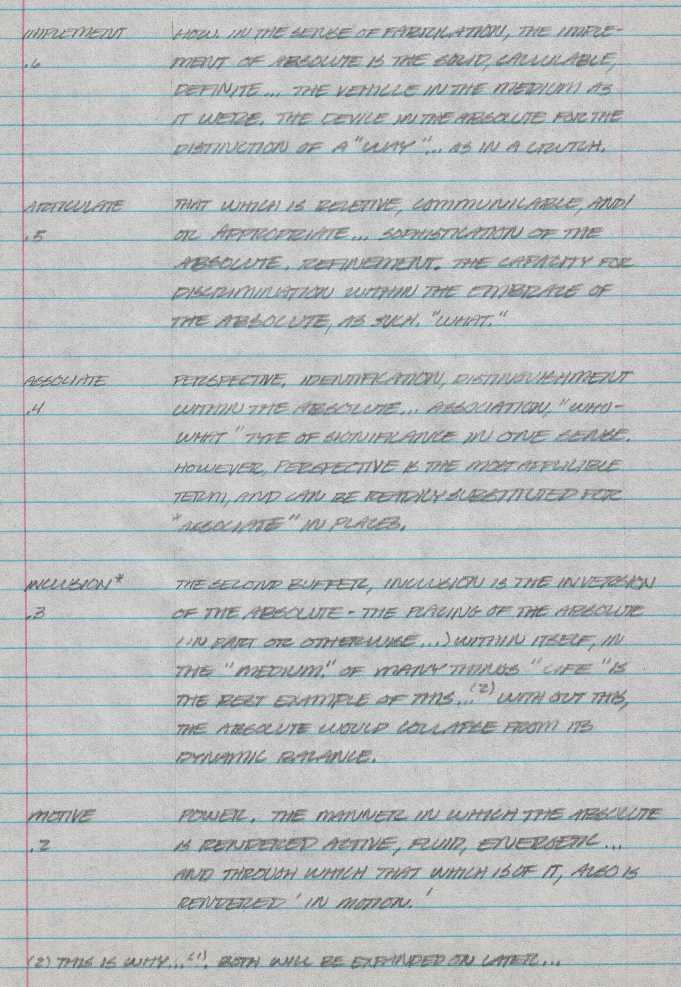 IMPLEMENT HOW. IN THE SENSE OF FABRICATION, THE IMPLE-
.6 MENT OF ABSOLUTE IS THE SOLID, CALCULABLE,
DEFINITE... THE VEHICLE IN THE MEDIUM AS
IT WERE. THE DEVICE IN THE ABSOLUTE FOR THE
DISTINCTION OF A "WHY"... AS IN A CRUTCH.
ARTICULATE THAT WHICH IS RELETIVE, COMMUNICABLE, AND/
.5 OR APPROPRIATE... SOPHISTICATION OF THE
ABSOLUTE. REFINEMENT. THE CAPACITY FOR
DISCRIMINATION WITHIN THE EMBRACE OF
THE ABSOLUTE, AS SUCH. "WHAT."
ASSOCIATE PERSPECTIVE. IDENTIFICATION, DISTINGUISHMENT
.4 WITHIN THE ABSOLUTE... ASSOCIATION, "WHO-
WHAT" TYPE OF SIGNIFICANCE IN ONE SENSE.
HOWEVER, PERSPECTIVE IS THE MOST APPLICIBLE
TERM, AND CAN BE READILY SUBSTITUTED FOR
"ASSOCIATE" IN PLACES.
INCLUSION* THE SECOND BUFFER, INCLUSION IS THE INVERSION
.3 OF THE ABSOLUTE - THE PLACING OF THE ABSOLUTE
(IN PART OR OTHERWISE...) WITHIN ITSELF, IN
THE "MEDIUM." OF MANY THINGS "LIFE" IS
THE BEST EXAMPLE OF THIS...(2) WITH OUT THIS,
THE ABSOLUTE WOULD COLLAPSE FROM ITS
DYNAMIC BALANCE.
MOTIVE POWER. THE MANNER IN WHICH THE ABSOLUTE
.2 IS RENDERED ACTIVE, FLUID, ENERGETIC...
AND THROUGH WHICH THAT WHICH IS OF IT, ALSO IS
RENDERED 'IN MOTION.'
(2) THIS IS WHY...(1). BOTH WILL BE EXPANDED ON LATER...